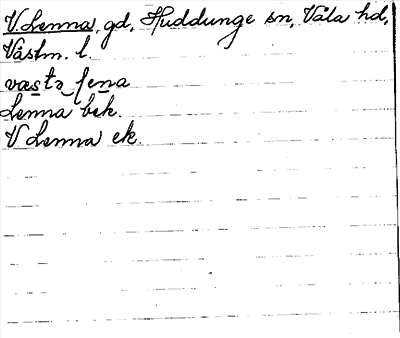 V Lenna, gd, Huddunge sn, Våla hd,
Västm. l.
væstə lena
Lenna bek.
V Lenna ek.